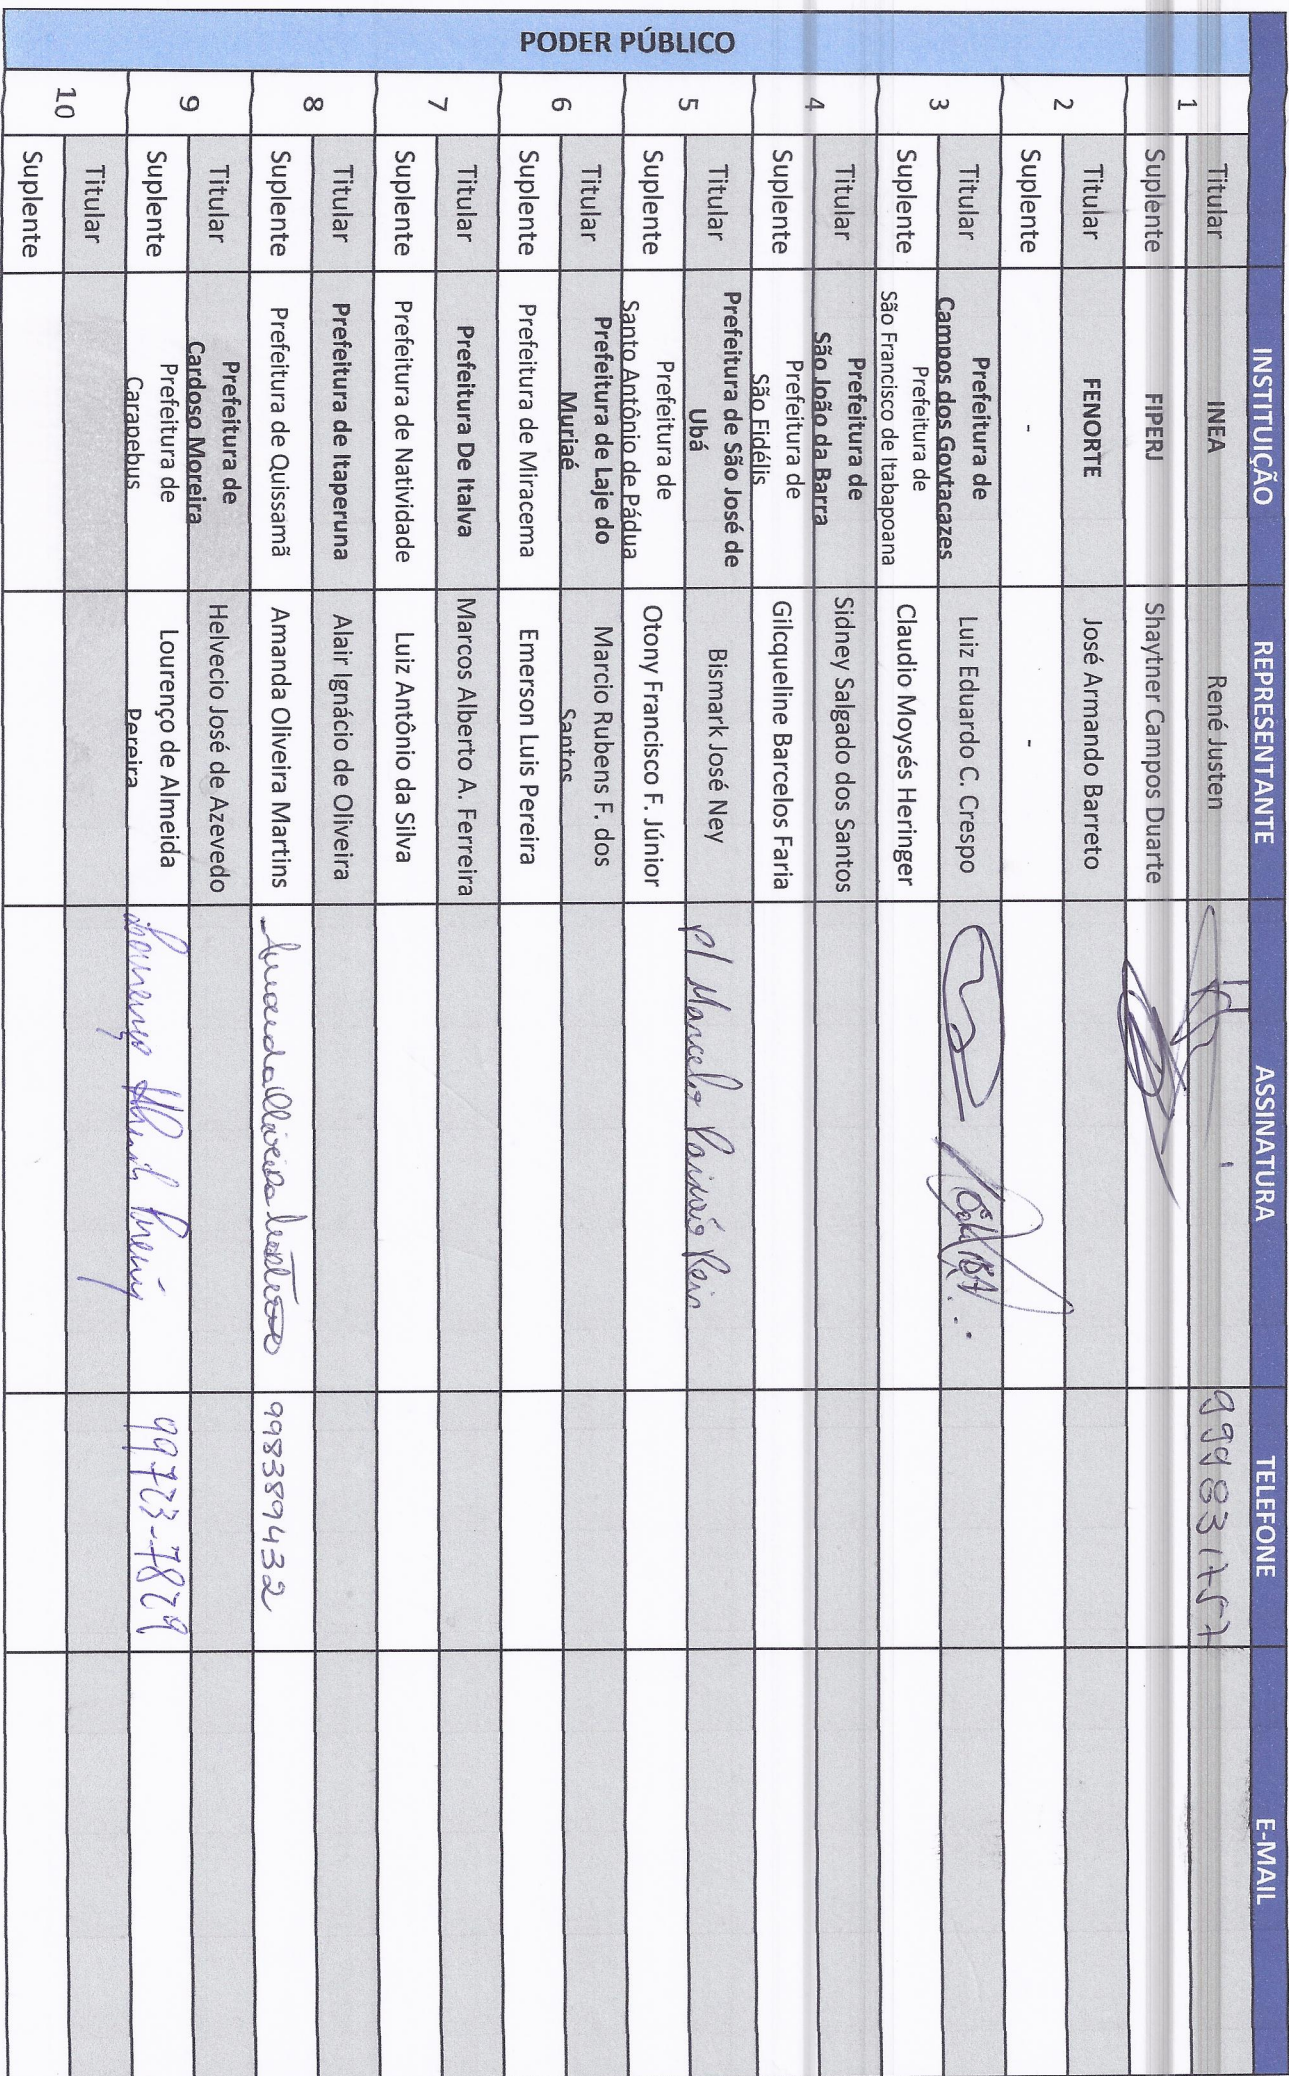 INSTITUIÇÃO REPRESENTANTE ASSINATURA TELEFONE E-MAIL
PODER PÚBLICO
1
Titular INEA René Justen
Suplente FIPERJ Shaytner Campos Duarte
2
Titular FENORTE José Armando Barreto
Suplente - -
3
Titular Prefeitura de
Campos dos Goytacazes Luiz Eduardo C. Crespo
Suplente Prefeitura de
São Francisco de Itabapoana Claudio Moysés Heringer
4
Titular Prefeitura de
São João da Barra Sidney Salgado dos Santos
Suplente Prefeitura de
São Fidélis Gilcqueline Barcelos Faria
5
Titular Prefeitura de São José de
Ubá Bismark José Ney p/ Marcelo Paixão Reis
Suplente Prefeitura de
Santo Antônio de Pádua Otony Francisco F. Júnior
6
Titular Prefeitura de Laje do
Muriaé Marcio Rubens F. dos
Santos
Suplente Prefeitura de Miracema Emerson Luis Pereira
7
Titular Prefeitura De Italva Marcos Alberto A. Ferreira
Suplente Prefeitura de Natividade Luiz Antônio da Silva
8
Titular Prefeitura de Itaperuna Alair Ignácio de Oliveira
Suplente Prefeitura de Quissamã Amanda Oliveira Martins Amanda Oliveira 998389432
9
Titular Prefeitura de
Cardoso Moreira Helvecio José de Azevedo
Suplente Prefeitura de
Carapebus Lourenço de Almeida
Pereira Lourenço Almeida Pereira 99723-7829
10
Titular
Suplente